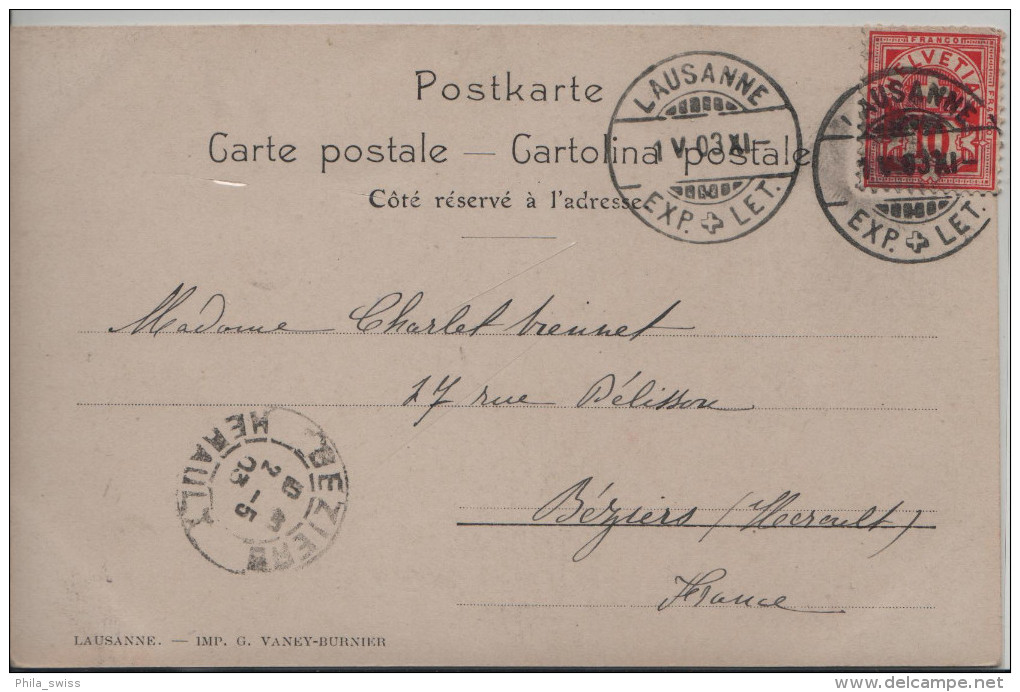 Postkarte
Carte postale — Cartolina postale
Côté réservé à l'adresse
FRANCO
HELVETIA
10
LAUSANNE
1 V 03 XI–
EXP. LET.
LAUSANNE
1 V 03 XI–
EXP. LET.
Madame Charlet Viennet
17 rue Pélisson
Béziers (Herault)
France
BEZIERS
HERAULT
2 -5
03
LAUSANNE. — IMP. G. VANEY-BURNIER
Phila_swiss
delcampe.net